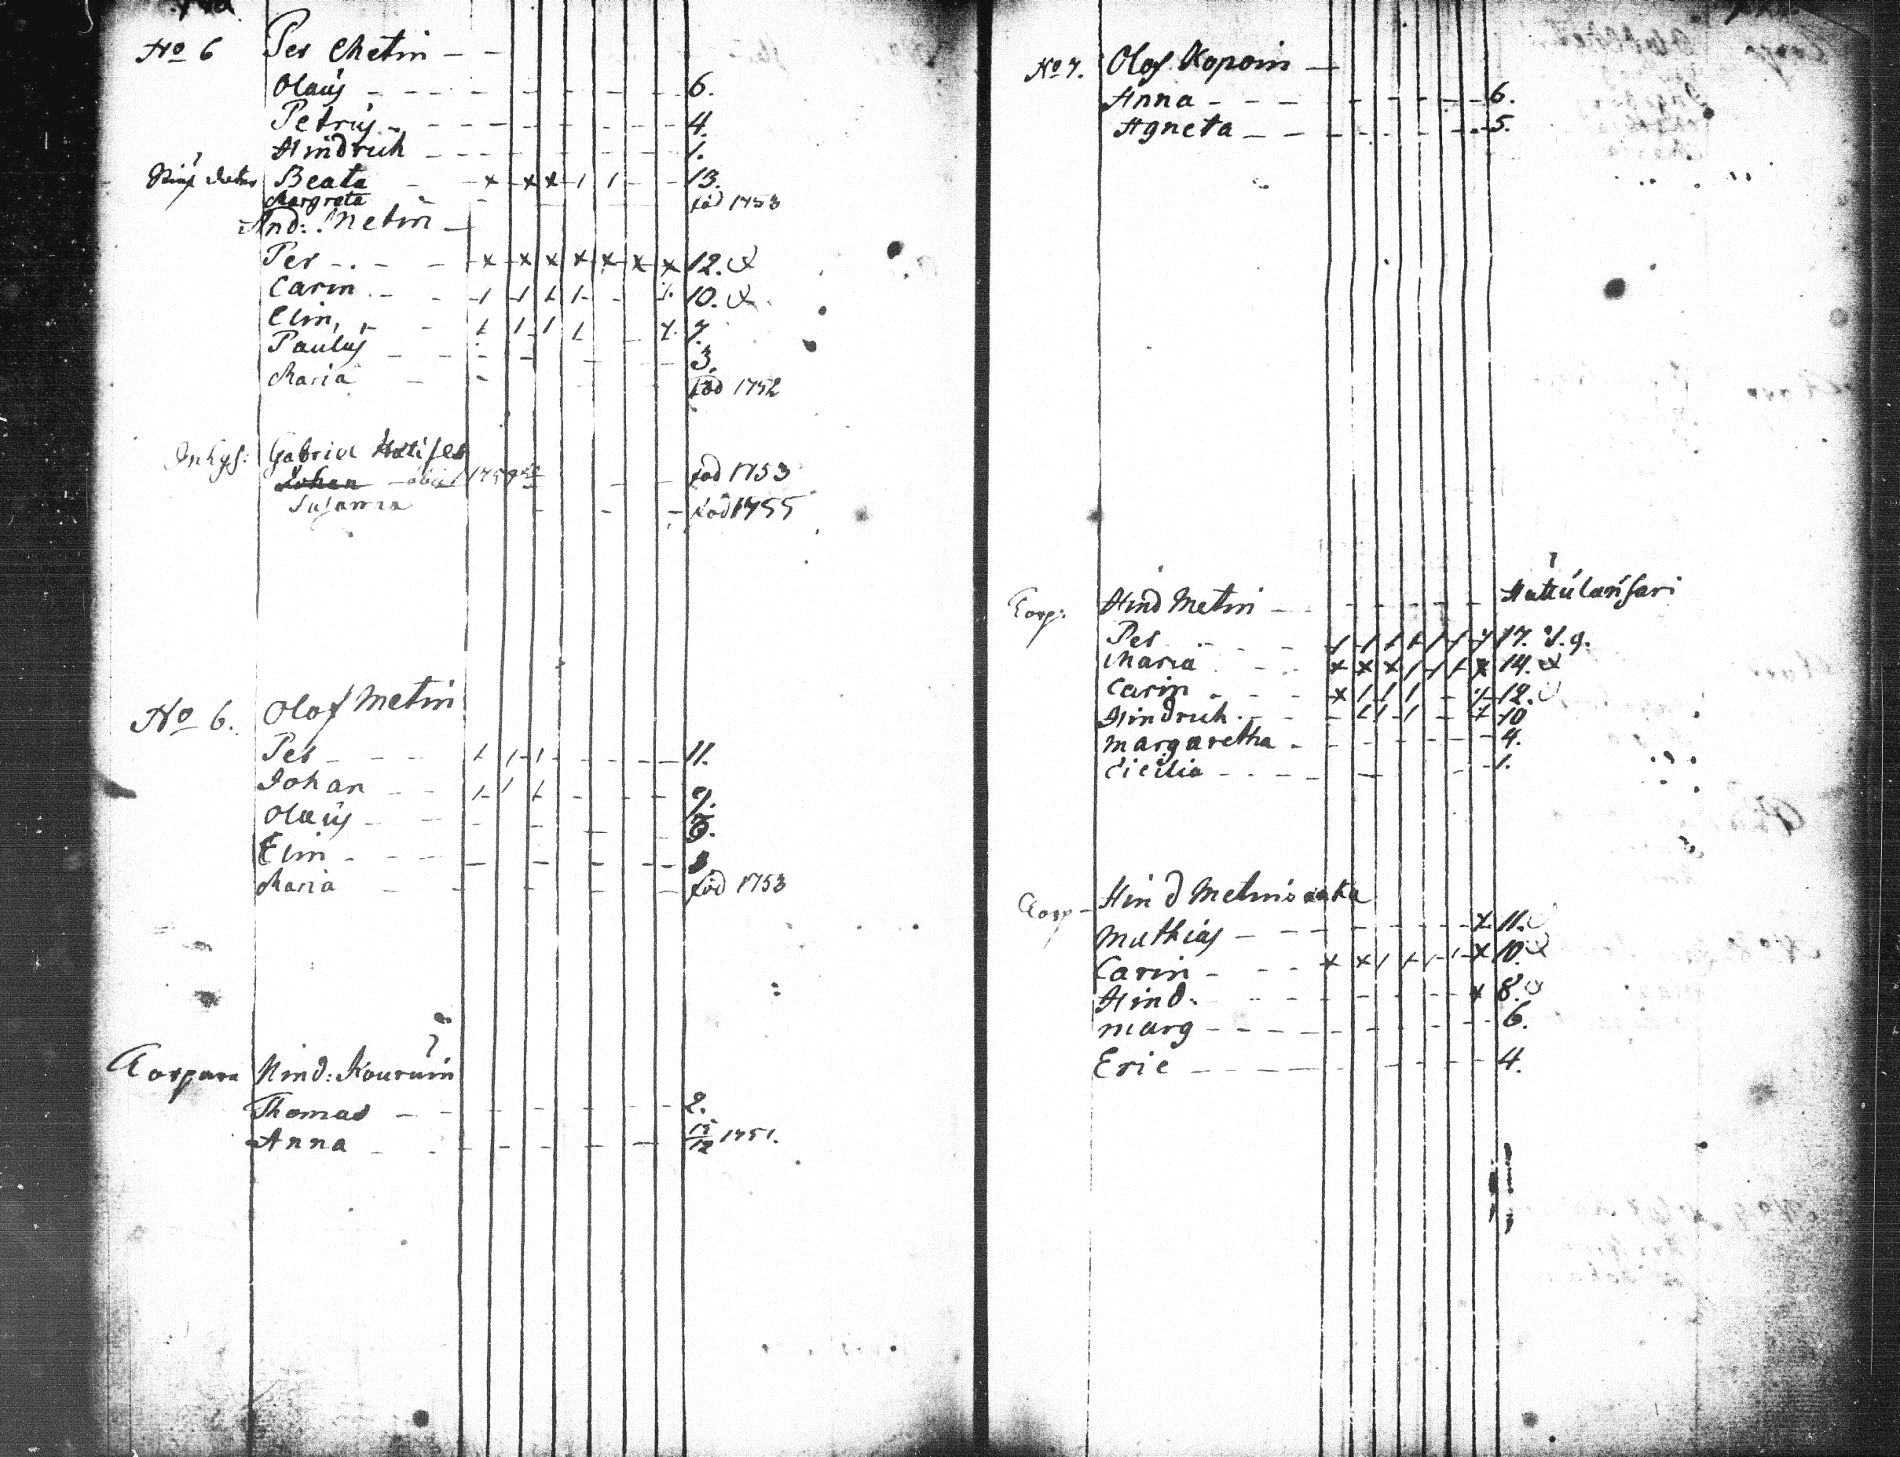 No 6 Per Metin
Olaus 6.
Petrus 4.
Hindrich 1.
Beata x x x / / 13.
Margreta föd 1753
And: Metin
Per x x x x x x x 12.
Carin / / / / 10.
Elin / / / / 7.
Paulus 3.
Maria föd 1752
Inhys: Gabriel
Johan obiit föd 1753
Susanna föd 1755
No 6. Olof Metin
Per / / / 11.
Johan / / / 9.
Olaus
Elin
Maria föd 1753
Torpare Hind: Kouruin
Thomas 2.
Anna 15/12 1751.
No 7. Olof Kopoin
Anna 6.
Agneta 5.
Torp: Hind Metin
Per / / / / / / 17.
Maria x x x / / / x 14.
Carin x / / / 12.
Hindrich / / / 10
Margaretha 4.
Cicilia 1.
Torp Hind Metins
Mathias x 11.
Carin x x / / / / x 10.
Hind: x 8.
Marg 6.
Eric 4.